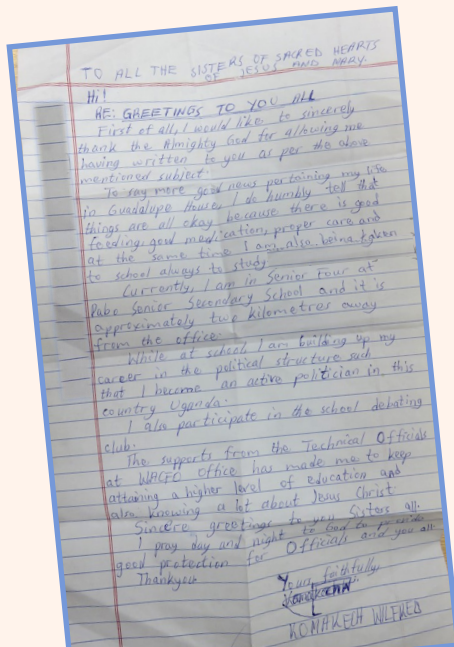 TO ALL THE SISTERS OF SACRED HEARTS
OF JESUS AND MARY.
Hi!
RE: GREETINGS TO YOU ALL
First of all, I would like to sincerely
thank the Almighty God for allowing me
having written to you as per the above
mentioned subject.
To say more good news pertaining my life
in Guadalupe House, I do humbly tell that
things are all okay because there is good
feeding, good medication, proper care and
at the same time I am also being taken
to school always to study.
Currently, I am in Senior Four at
Pabo Senior Secondary School and it is
approximately two kilometres away
from the office.
While at school I am building up my
career in the political structure such
that I become an active politician in this
country Uganda.
I also participate in the school debating
club.
The supports from the Technical Officials
at WACFO Office has made me to keep
attaining a higher level of education and
also knowing a lot about Jesus Christ
Sincere greetings to you Sisters all.
I pray day and night to God to provide
good protection for Officials and you all
Thankyou
Yours faithfully,
KOMAKECH WILFRED